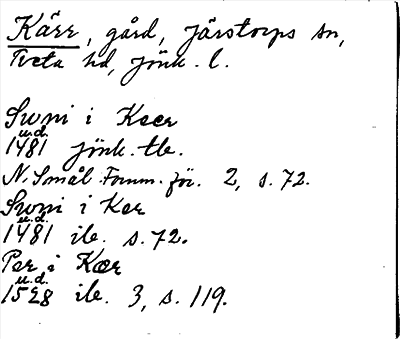 Kärr, gård, Järstorps sn,
Tveta hd, Jönk. l.
Swni i Kær
u.d.
1481 Jönk. tb.
N. Smål. Fornm. för. 2, s. 72.
Swni i Kær
u.d.
1481 ib. s. 72.
Per i Kær
u.d.
1528 ib. 3, s. 119.